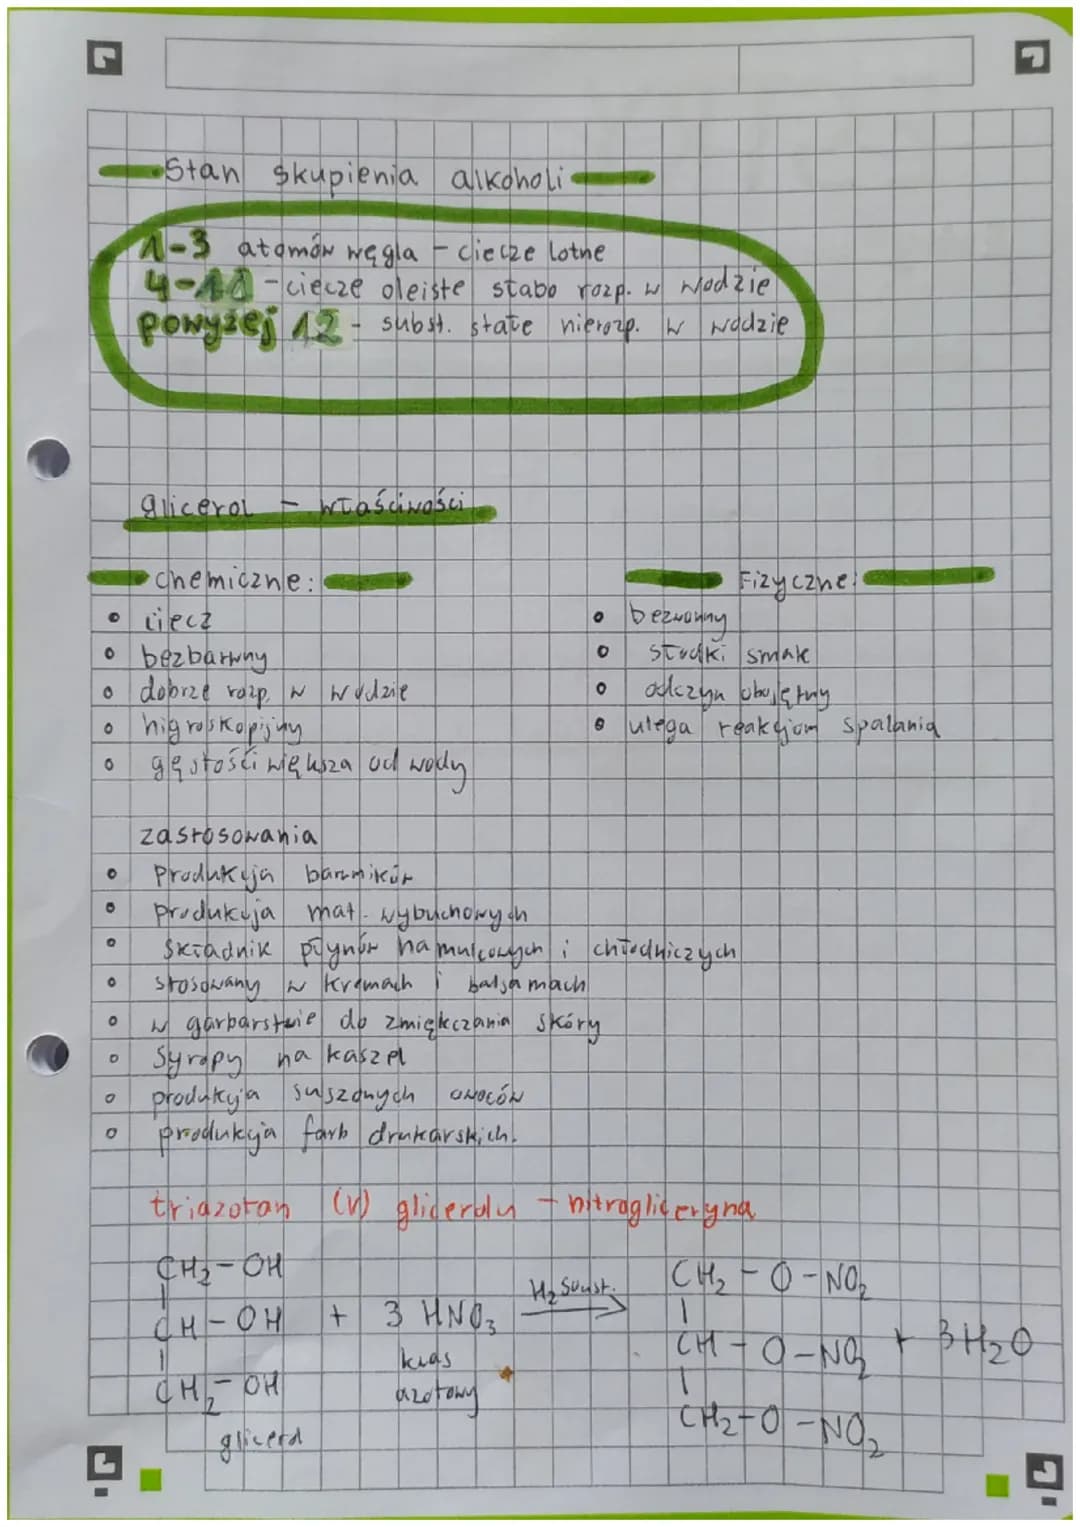 Stan skupienia alkoholi
1-3 atomów węgla - ciecze lotne
4-11 - ciecze oleiste słabo rozp. w wodzie
powyżej 12 - subst. stałe nierozp. w wodzie
glicerol - właściwości
chemiczne:
ciecz
bezbarwny
dobrze rozp. w wodzie
higroskopijny
gęstości większa od wody
Fizyczne:
bezwonny
słodki smak
odczyn obojętny
ulega reakcjom spalania
zastosowania
Produkcja barwników
produkcja mat. wybuchowych
składnik płynów hamulcowych i chłodniczych
stosowany w kremach i balsamach
w garbarstwie do zmiękczania skóry
Syropy na kaszel
produkcja suszonych owoców
produkcja farb drukarskich.
triazotan (V) glicerolu - nitrogliceryna
CH2-OH
CH-OH + 3 HNO3 H2SO4st. CH2-O-NO2
CH2-OH kwas azotowy CH-O-NO2 + 3H2O
glicerol CH2-O-NO2